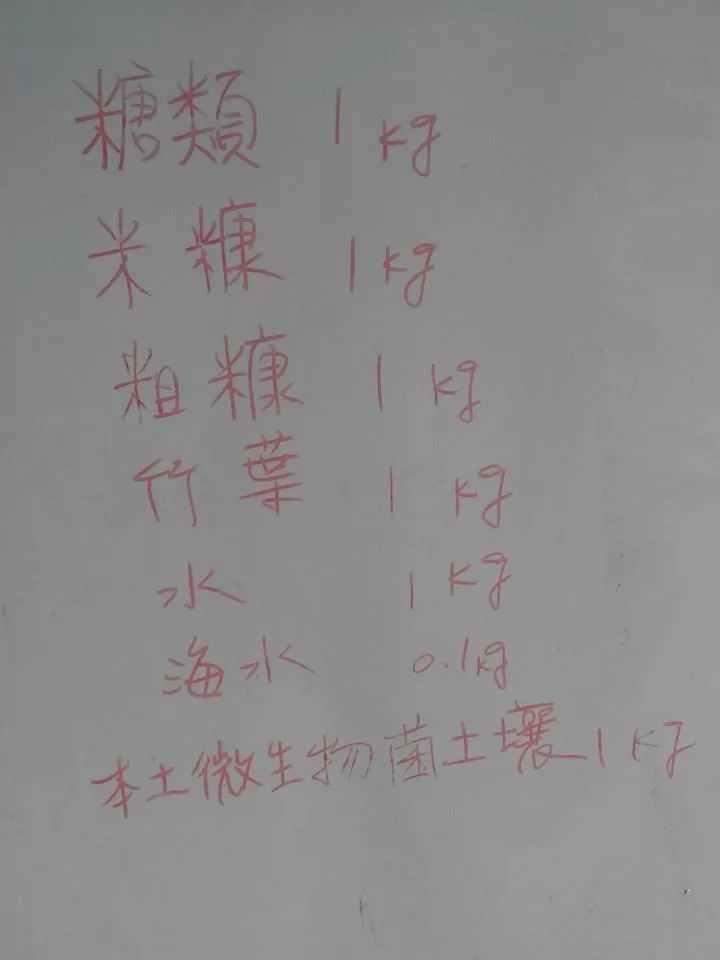 糖類 1 kg
米糠 1 kg
粗糠 1 kg
竹葉 1 kg
水 1 kg
海水 0.1kg
本土微生物菌土壤 1 kg